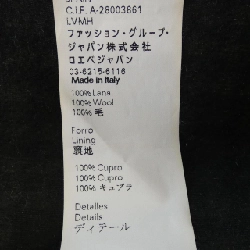 C.I.F. A-28003861
LVMH
ファッション・グループ・
ジャパン株式会社
ロエベジャパン
03-6215-6116
Made in Italy
100% Lana
100% Wool
100% 毛
Forro
Lining
裏地
100% Cupro
100% Cupro
100% キュプラ
Detalles
Details
ディテール